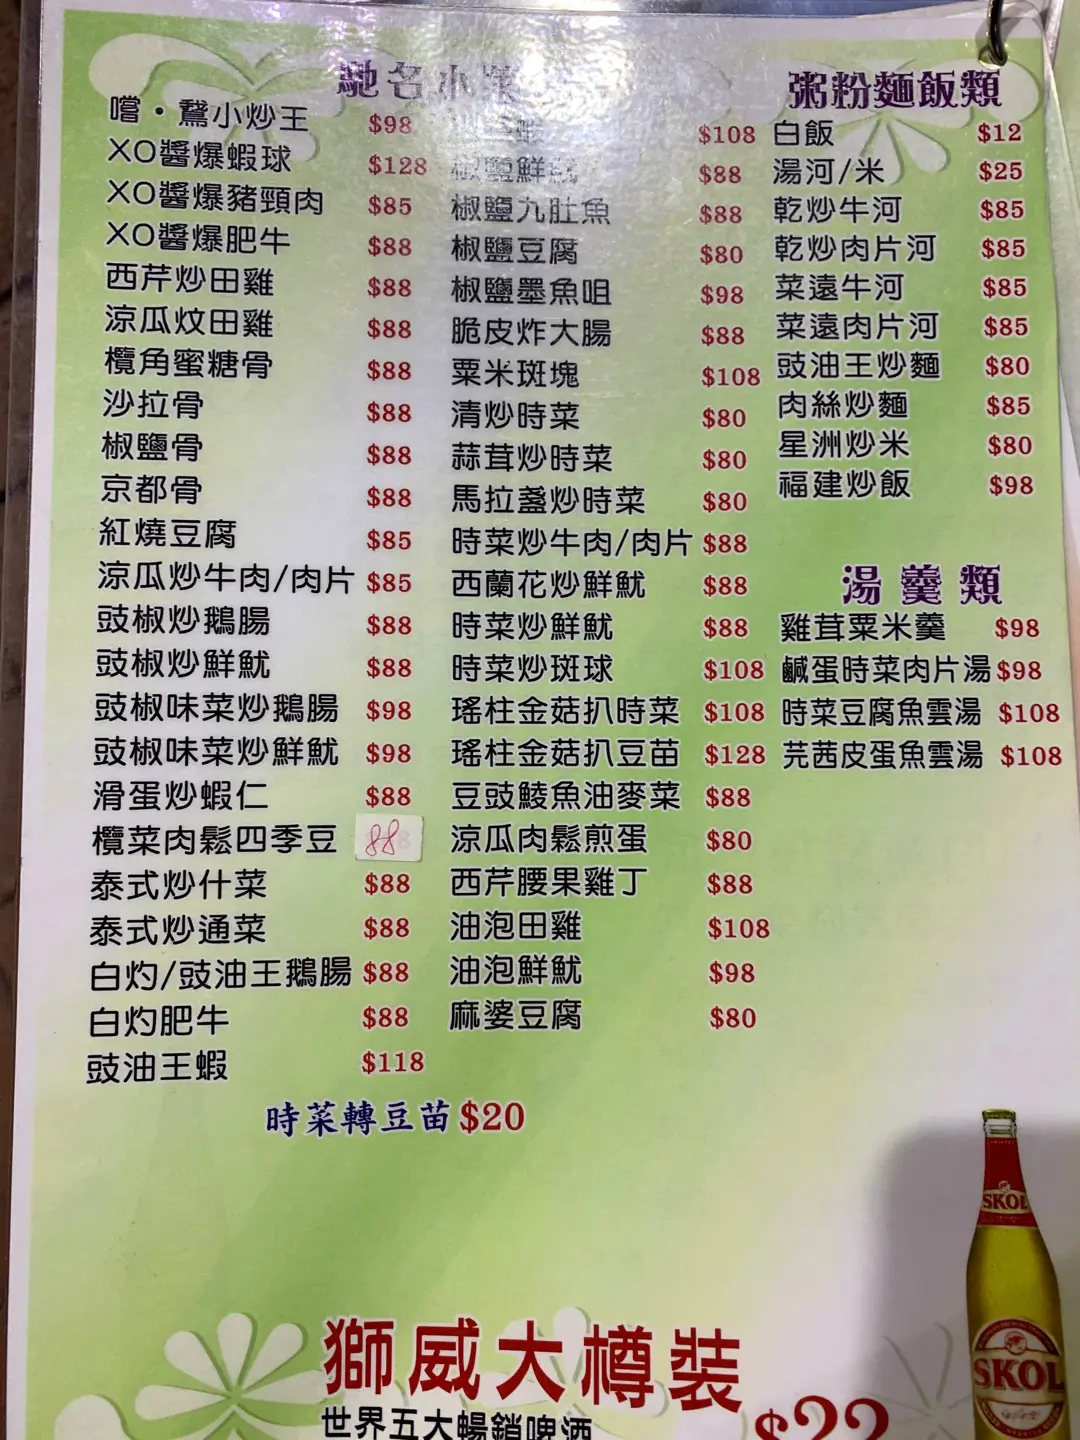 馳名小菜
嚐・鵞小炒王 $98
XO醬爆蝦球 $128
XO醬爆豬頸肉 $85
XO醬爆肥牛 $88
西芹炒田雞 $88
涼瓜炆田雞 $88
欖角蜜糖骨 $88
沙拉骨 $88
椒鹽骨 $88
京都骨 $88
紅燒豆腐 $85
涼瓜炒牛肉/肉片 $85
豉椒炒鵝腸 $88
豉椒炒鮮魷 $88
豉椒味菜炒鵝腸 $98
豉椒味菜炒鮮魷 $98
滑蛋炒蝦仁 $88
欖菜肉鬆四季豆 88
泰式炒什菜 $88
泰式炒通菜 $88
白灼/豉油王鵝腸 $88
白灼肥牛 $88
豉油王蝦 $118
蝦 $108
椒鹽鮮魷 $88
椒鹽九肚魚 $88
椒鹽豆腐 $80
椒鹽墨魚咀 $98
脆皮炸大腸 $88
粟米斑塊 $108
清炒時菜 $80
蒜茸炒時菜 $80
馬拉盞炒時菜 $80
時菜炒牛肉/肉片 $88
西蘭花炒鮮魷 $88
時菜炒鮮魷 $88
時菜炒斑球 $108
瑤柱金菇扒時菜 $108
瑤柱金菇扒豆苗 $128
豆豉鯪魚油麥菜 $88
涼瓜肉鬆煎蛋 $80
西芹腰果雞丁 $88
油泡田雞 $108
油泡鮮魷 $98
麻婆豆腐 $80
時菜轉豆苗$20
粥粉麵飯類
白飯 $12
湯河/米 $25
乾炒牛河 $85
乾炒肉片河 $85
菜遠牛河 $85
菜遠肉片河 $85
豉油王炒麵 $80
肉絲炒麵 $85
星洲炒米 $80
福建炒飯 $98
湯羹類
雞茸粟米羹 $98
鹹蛋時菜肉片湯 $98
時菜豆腐魚雲湯 $108
芫茜皮蛋魚雲湯 $108
獅威大樽裝
世界五大暢銷啤酒
$22
SKOL
SKOL